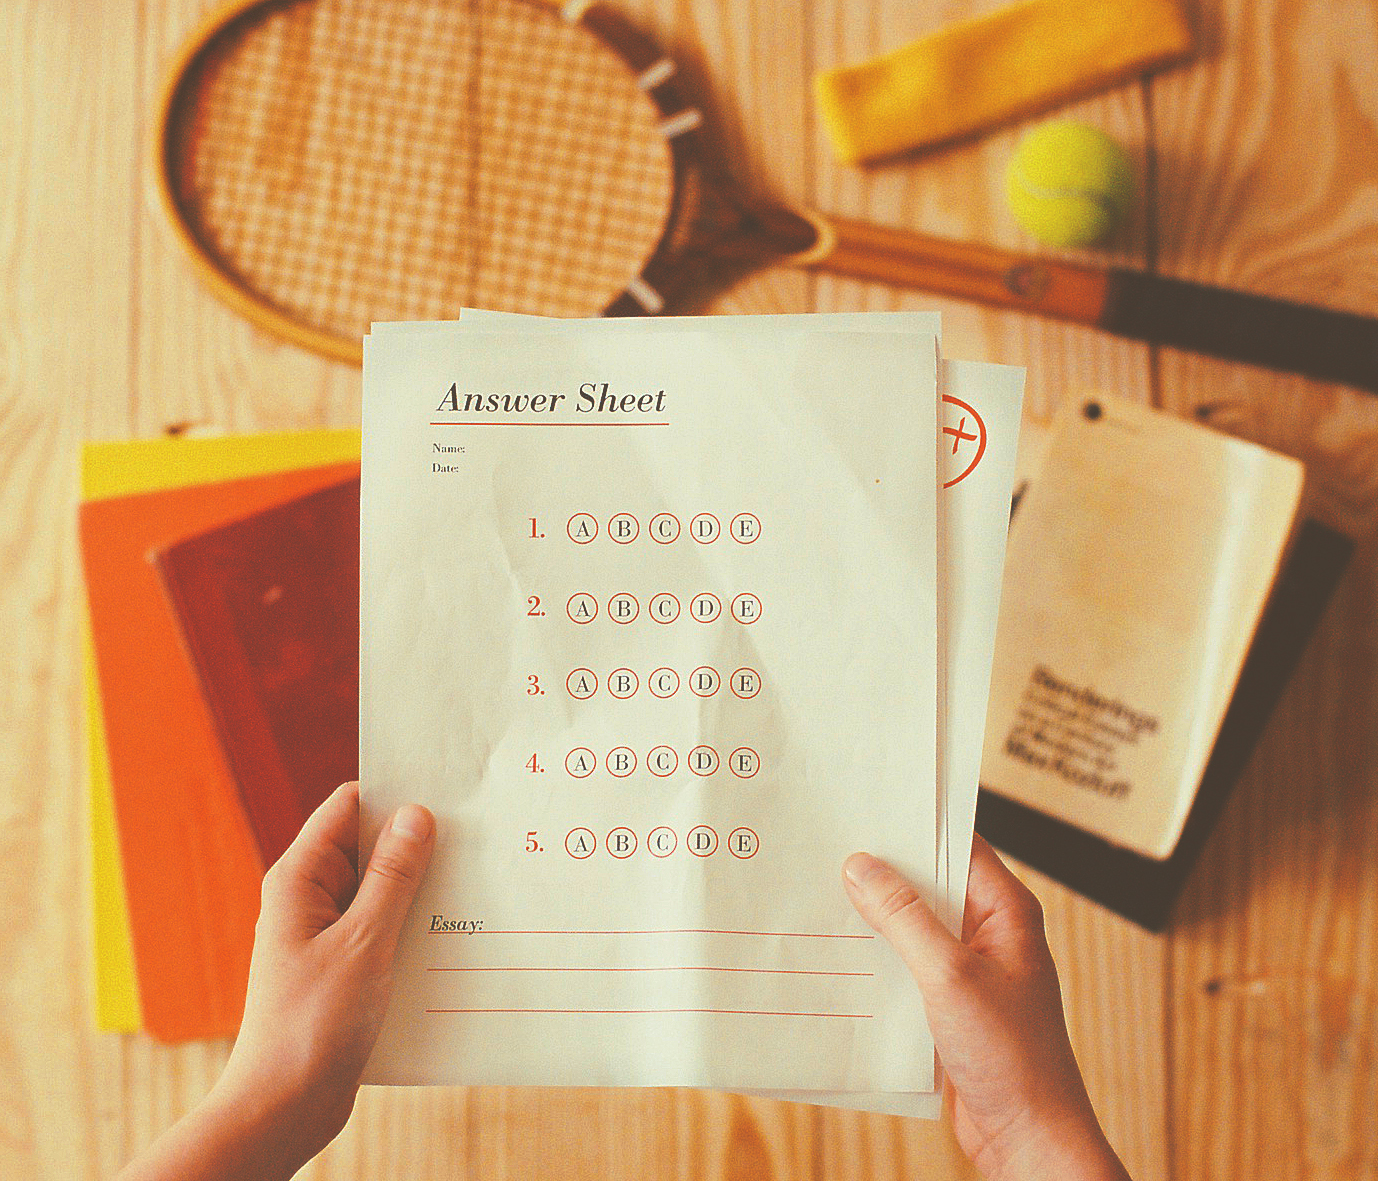 Answer Sheet
Name:
Date:
1. A B C D E
2. A B C D E
3. A B C D E
4. A B C D E
5. A B C D E
Essay:
+
Renderings